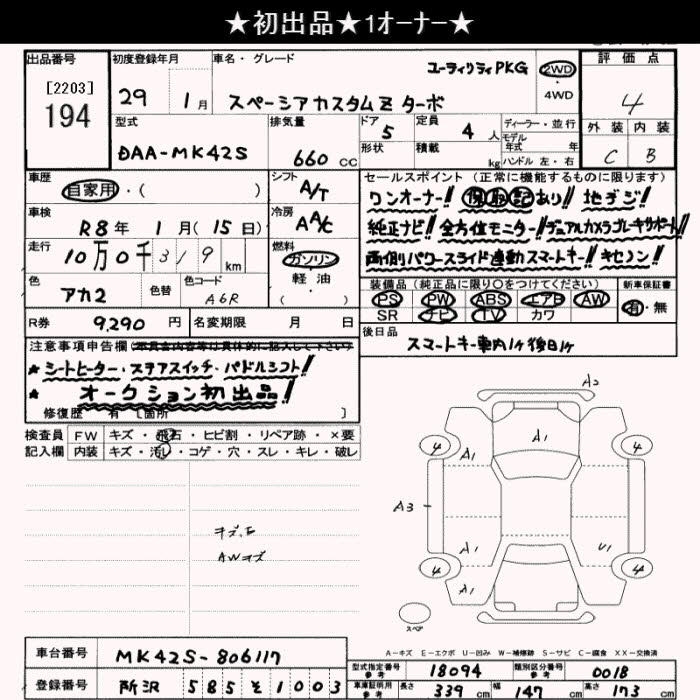 ★初出品★1オーナー★
出品番号
[2203]
194
初度登録年月
29 1月
車名・グレード
ユーティリティPKG
スペーシアカスタムZ ターボ
2WD
・4WD
評価点
4
外装 内装
C B
型式
DAA-MK42S
排気量
660 CC
ドア 5
形状
定員 4 人
積載 kg
ディーラー・並行
モデル
年式 年
ハンドル 左・右
車歴
自家用・( )
シフト
A/T
車検
R8年 1月(15日)
冷房
AAC
走行
10万0千319 km
燃料
ガソリン
軽油
( )
色
アカ2
色替
色コード
A6R
R券
9,290 円
名変期限 月 日
セールスポイント (正常に機能するものに限ります)
ワンオーナー!! 保取記あり!! 地デジ!
純正ナビ! 全方位モニター!! デュアルカメラブレーキサポート!!
両側パワースライド連動スマートキー!! キセノン!
装備品 (純正品に限り○をつけてください)
PS PW ABS エアB AW
SR ナビ TV カワ
新車保証書
有・無
後日品
スマートキー車内1ケ後日1ケ
注意事項申告欄
★シートヒーター・ステアスイッチ・パドルシフト!
★ オークション初出品!
修復歴 有 [箇所 ]
検査員
記入欄
FW キズ・飛石・ヒビ割・リペア跡・×要
内装 キズ・汚レ・コゲ・穴・スレ・キレ・破レ
AWキズ
A2
A1
4 A1 4
A3
A1 U1
4 A1 4
スペア
A-キズ E-エクボ U-凹み W-補修跡 S-サビ C-腐食 XX-交換済
車台番号
MK42S-806117
登録番号
所沢 585 そ 1003
型式指定番号
参考
18094
類別区分番号
参考
0018
車庫証明用
参考
長さ 339 cm 幅 147 cm 高さ 173 cm